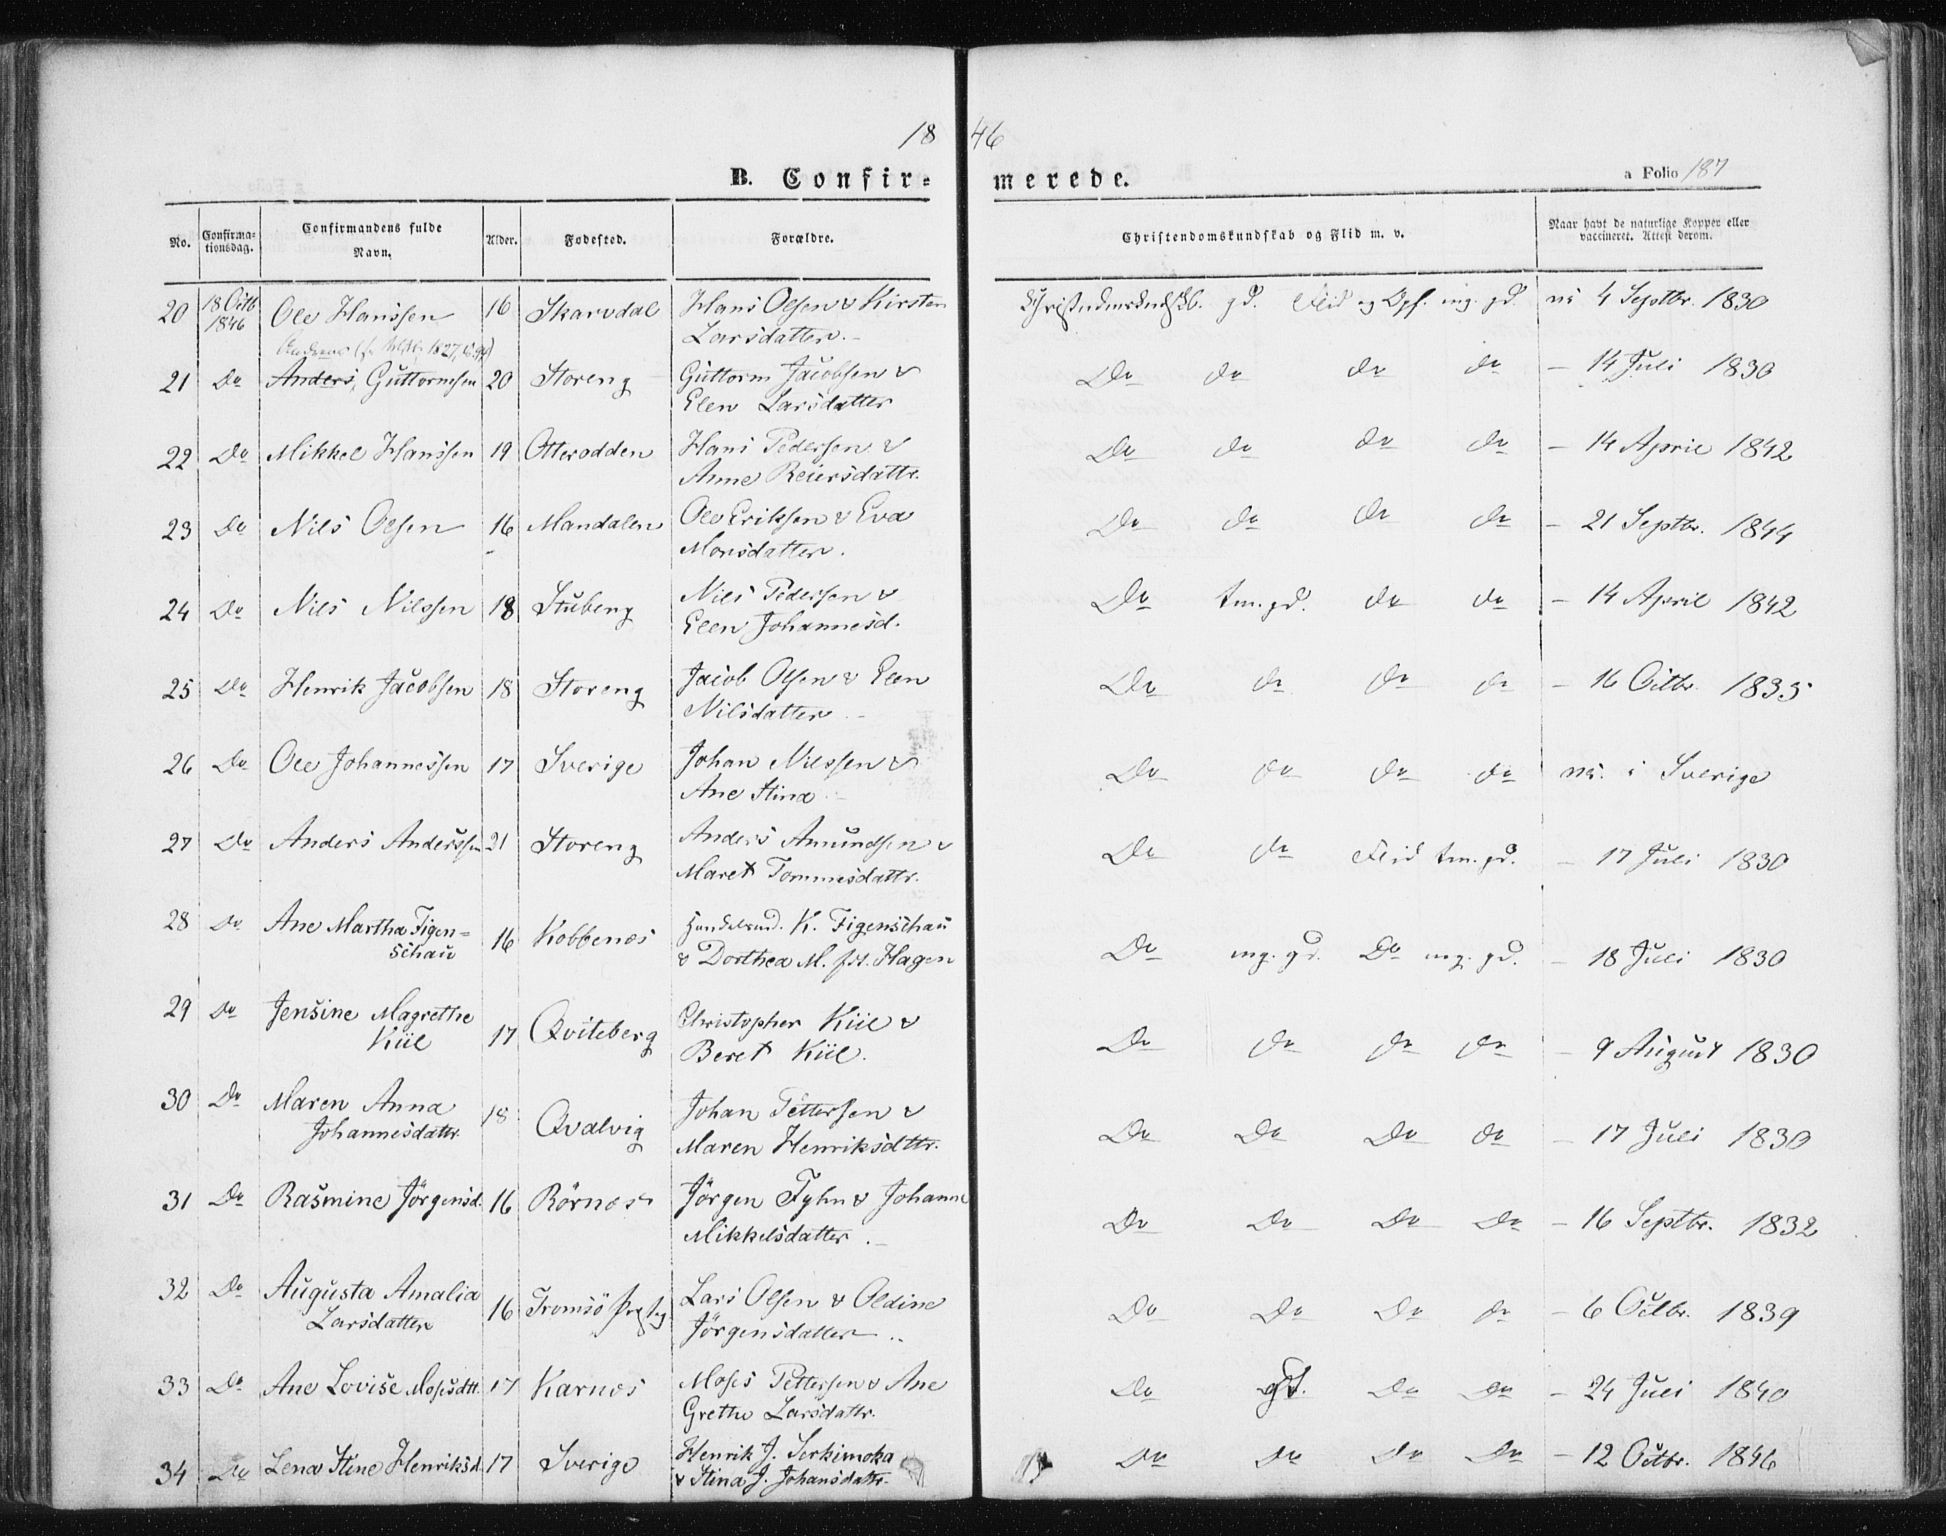 1846
B. Confirmerede.
a Folio 187
No. Confirmationsdag. Confirmandens fulde Navn. Alder. Fødested. Forældre. Christendomskundskab og Flid m. v. Naar havt de naturlige Kopper eller vaccineret. Attest derom.
20 18 Octb 1846 Ole Hanssen 16 Skarvdal Hans Olsen & Kirsten Larsdatter. Christendomskndskb. gd. Flid og Opf. mg. gd. vs 4 Septbr. 1830
21 Do Anders, Guttormsen 20 Storeng Guttorm Jacobsen & Elen Larsdatter Do do do do – 14 Juli 1830
22 Do Mikkel Hanssen 19 Otterodden Hans Pedersen & Anne Reiersdattr. Do do do do – 14 April 1842
23 Do Nils Olsen 16 Mandalen Ole Eriksen & Eva Monsdatter. Do do do do – 21 Septbr. 1844
24 Do Nils Nilssen 18 Stubeng Nils Pedersen & Elen Johannesd. Do tm. gd. do do – 14 April 1842
25 Do Henrik Jacobsen 18 Storeng Jacob Olsen & Elen Nilsdatter Do do do do – 16 Octbr. 1835
26 Do Ole Johannessen 17 Sverige Johan Nilssen & Ane Stina Do do do do vs. i Sverige
27 Do Anders Anderssen 21 Storeng Anders Amundsen & Maret Tommesdattr. Do do Flid tm. gd. – 17 Juli 1830
28 Do Ane Martha Figenschau 16 Kobbenes Handelsmd. K. Figenschau & Dorthea M. fd. Hagen Do mg. gd. Do mg. gd. – 18 Juli 1830
29 Do Jensine Magrethe Kiil 17 Qviteberg Christopher Kiil & Beret Kiil. Do do do do – 9 August 1830
30 Do Maren Anna Johannesdattr. 18 Qvalvig Johan Pettersen & Maren Henriksdttr. Do Do Do do – 17 Juli 1830
31 Do Rasmine Jörgensd. 16 Rörnes Jörgen Fyhn & Johanne Mikkelsdatter. Do Do Do Do – 16 Septbr. 1832
32 Do Augusta Amalia Larsdatter 16 Tromsö Lars Olsen & Oldine Jörgensdatter Do Do Do do – 6 Octbr. 1839
33 Do Ane Lovise Mosesdtt. 17 Karnes Moses Pettersen & Ane Grethe Larsdattr. Do gdt. Do Do – 24 Juli 1840
34 Do Lena Stine Henriksd. 17 Sverige Henrik J. Serkimoka & Stina J. Johansdattr. Do Do Do Do – 12 Octbr. 1846